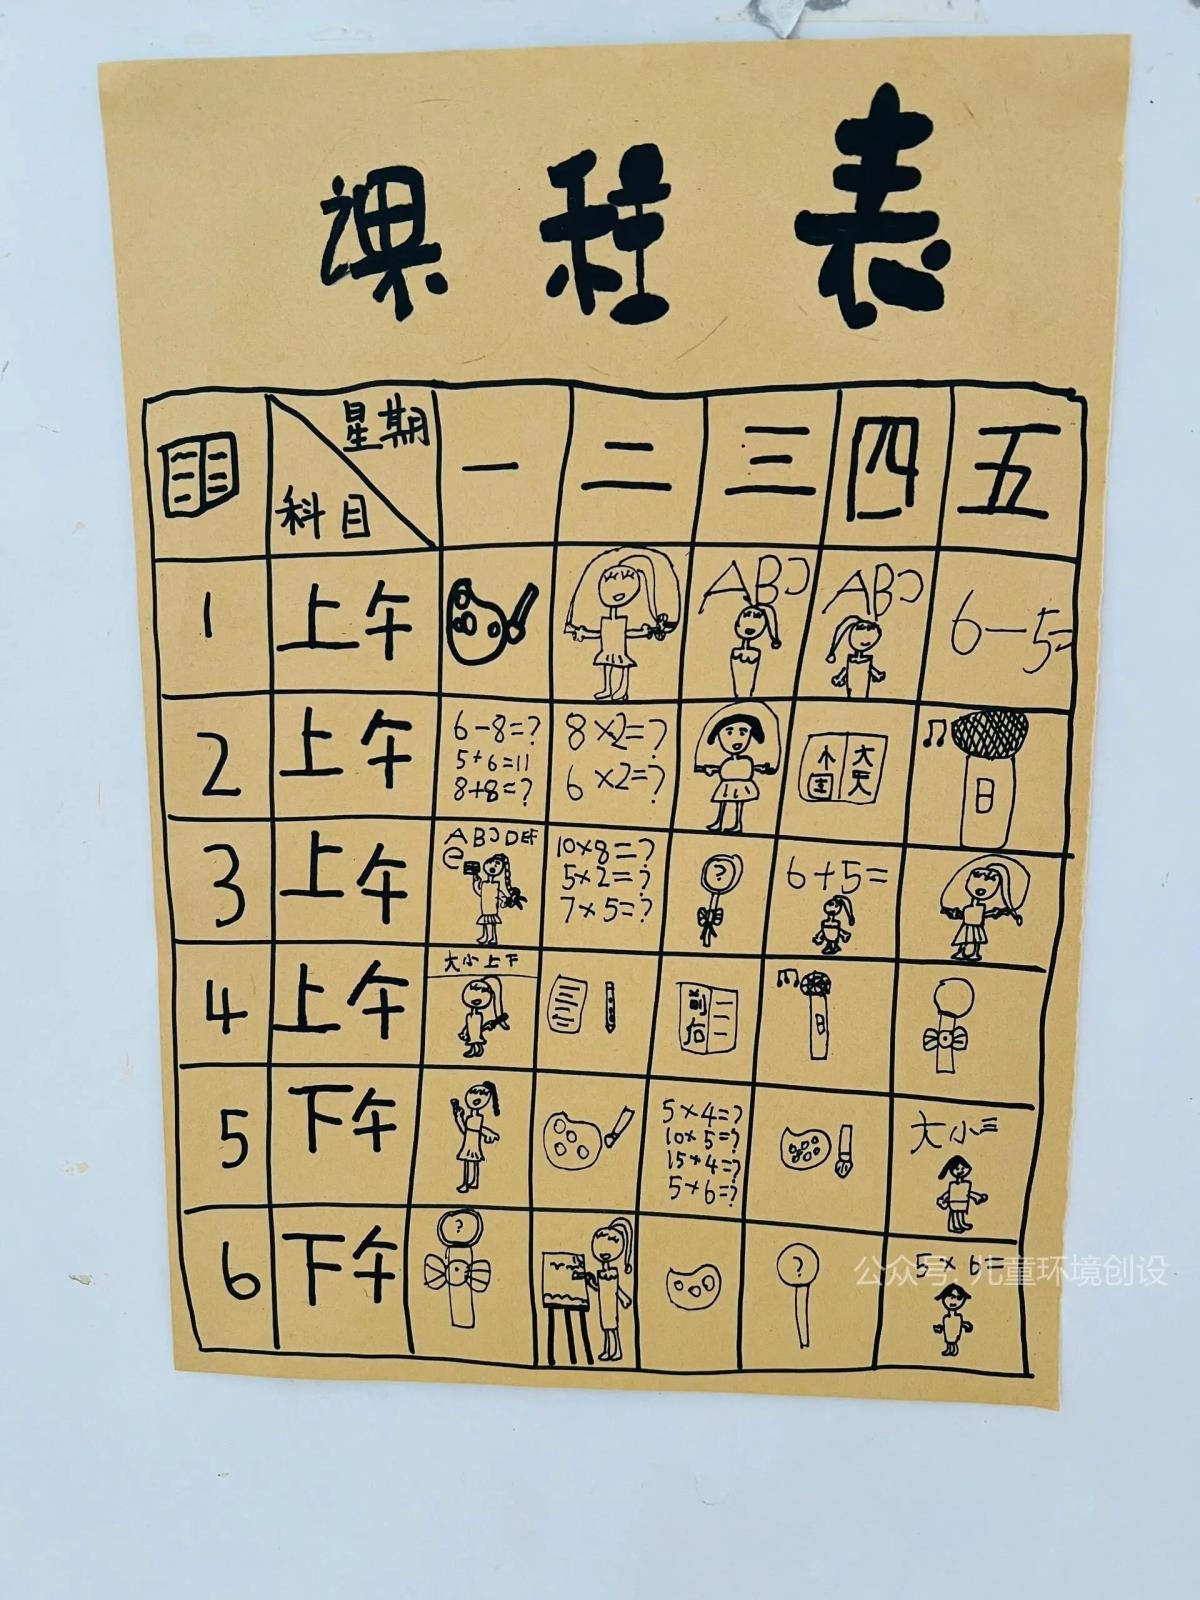 课程表
星期 一 二 三 四 五
科目
1 上午 ABC ABC 6-5=
2 上午 6-8=? 8×2=? 大
5+6=11 6×2=? 天
8+8=?
3 上午 ABCDEF 10×8=? ? 6+5=
e 5×2=?
7×5=?
4 上午 大小上下 前
后
5 下午 5×4=? 大小三
10×5=?
15×4=?
5×6=?
6 下午 ? ? 5×6=
公众号·儿童环境创设